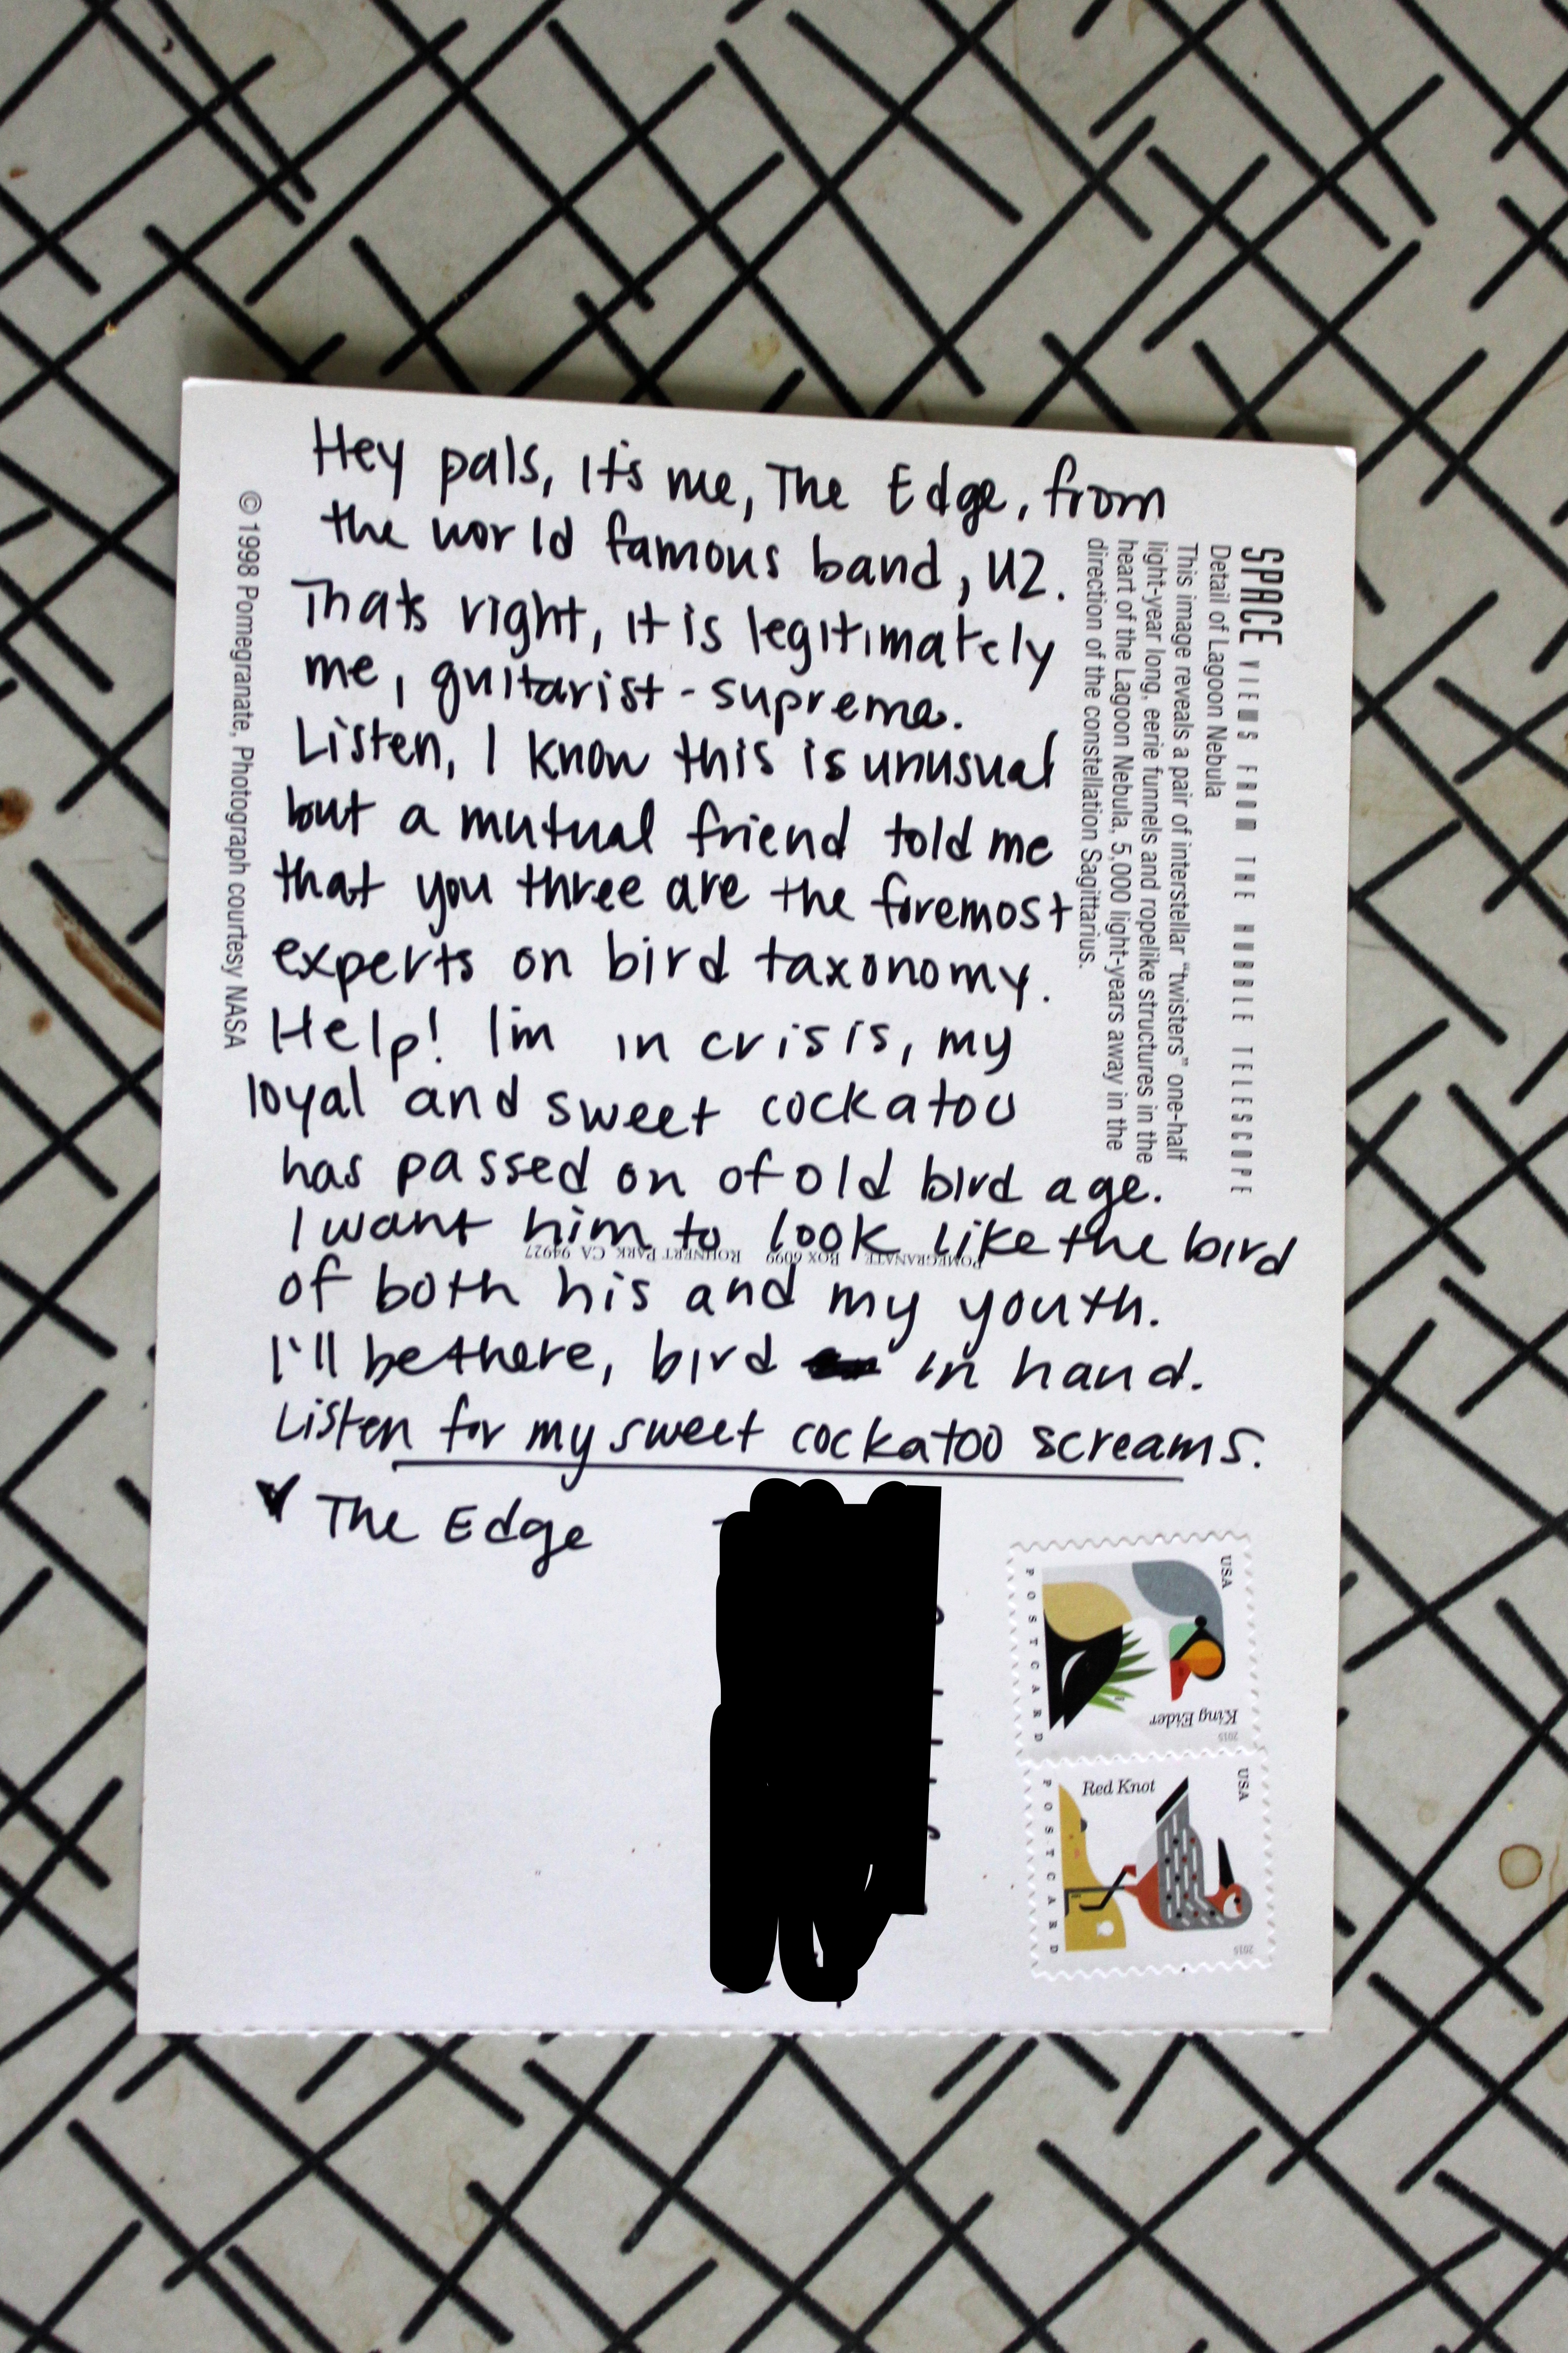 Hey pals, It's me, The Edge, from
the world famous band, U2.
Thats right, it is legitimately
me, guitarist-supreme.
Listen, I know this is unusual
but a mutual friend told me
that you three are the foremost
experts on bird taxonomy.
Help! I'm in crisis, my
loyal and sweet cockatoo
has passed on of old bird age.
I want him to look like the bird
of both his and my youth.
I'll be there, bird in hand.
Listen for my sweet cockatoo screams.
The Edge
SPACE VIEWS FROM THE HUBBLE TELESCOPE
Detail of Lagoon Nebula
This image reveals a pair of interstellar “twisters” one-half
light-year long, eerie funnels and ropelike structures in the
heart of the Lagoon Nebula, 5,000 light-years away in the
direction of the constellation Sagittarius.
© 1998 Pomegranate, Photograph courtesy NASA
POMEGRANATE BOX 6099 ROHNERT PARK CA 94927
USA
King Eider
2015
POSTCARD
USA
Red Knot
2015
POSTCARD